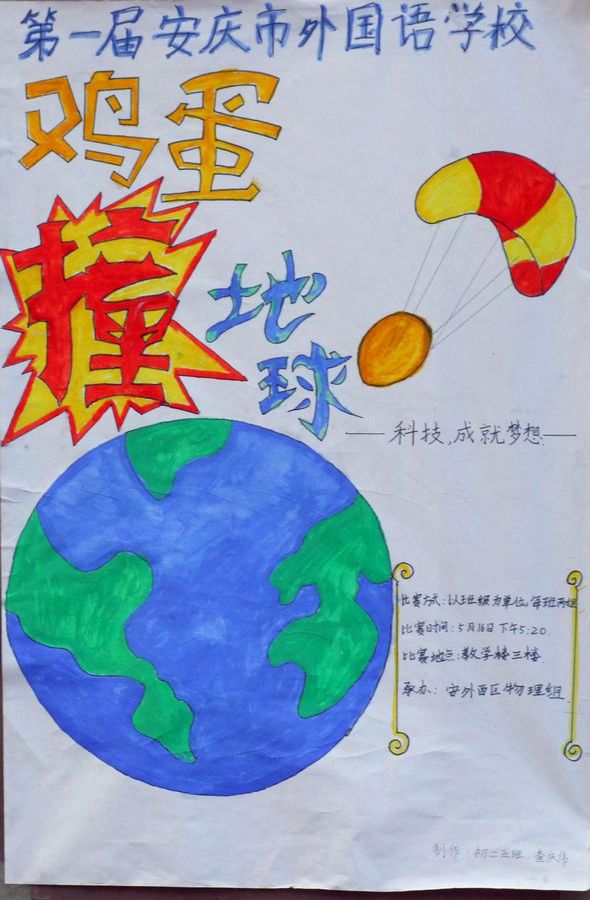 第一届安庆市外国语学校
鸡蛋
撞地
球
——科技,成就梦想——
比赛方式:以班级为单位,每班两组
比赛时间:5月16日下午5:20
比赛地点:教学楼三楼
承办:安外西区物理组
制作:初二五班.查庆伟